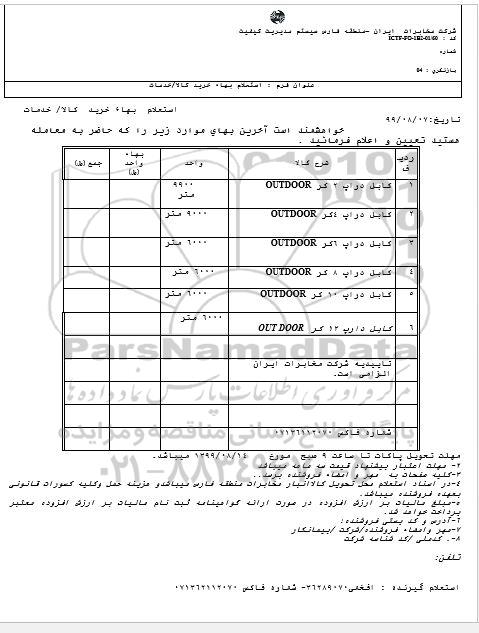 شرکت مخابرات ایران -منطقه فارس سیستم مدیریت کیفیت
کد : ICTF-FD-1B2-01/60
شماره
بازنگری : 04
عنوان فرم : استعلام بهاء خرید کالا/خدمات
استعلام بهاء خرید کالا/ خدمات
تاریخ:۹۹/۰۸/۰۷
خواهشمند است آخرین بهاي موارد زیر را که حاضر به معامله
هستید تعیین و اعلام فرمائید .
ردیف شرح کالا واحد بهاء واحد (ریال) جمع (ریال)
۱ کابل دراپ ۲ کر OUTDOOR ۹۹۰۰ متر
۲ کابل دراپ ٤کر OUTDOOR ۹۰۰۰ متر
۳ کابل دراپ ٦کر OUTDOOR ٦۰۰۰ متر
٤ کابل دراپ ۸ کر OUTDOOR ٦۰۰۰ متر
٥ کابل دراپ ۱۰ کر OUTDOOR ٦۰۰۰ متر
٦ کابل دارپ ۱۲ کر OUTDOOR ٦۰۰۰ متر
تاییدیه شرکت مخابرات ایران
الزامی است.
شماره فاکس ۰۷۱۳۲۱۱۲۰۷۰
ParsNamadData
مرکز فرآوری اطلاعات پارس نماد داده ها
پایگاه اطلاع رسانی مناقصه و مزایده
مهلت تحویل پاکات تا ساعت ۹ صبح مورخ ۱۳۹۹/۰۸/۱٤ میباشد.
۲- مهلت اعتبار پیشنهاد قیمت سه ماهه میباشد
۳-کلیه صفحات به مهر و امضاء فروشنده برسد.
٤-در اسناد استعلام محل تحویل کالا انبار مخابرات منطقه فارس میباشد و هزینه حمل وکلیه کسورات قانونی
بعهده فروشنده میباشد.
٥-مبلغ مالیات بر ارزش افزوده در صورت ارائه گواهینامه ثبت نام مالیات بر ارزش افزوده معتبر
پرداخت خواهد شد.
٦-آدرس و کد پستی فروشنده:
۷-مهر وامضاء فروشنده/شرکت /پیمانکار
۸-. کدملی /کد شناسه شرکت
تلفن:
استعلام گیرنده : افخمی